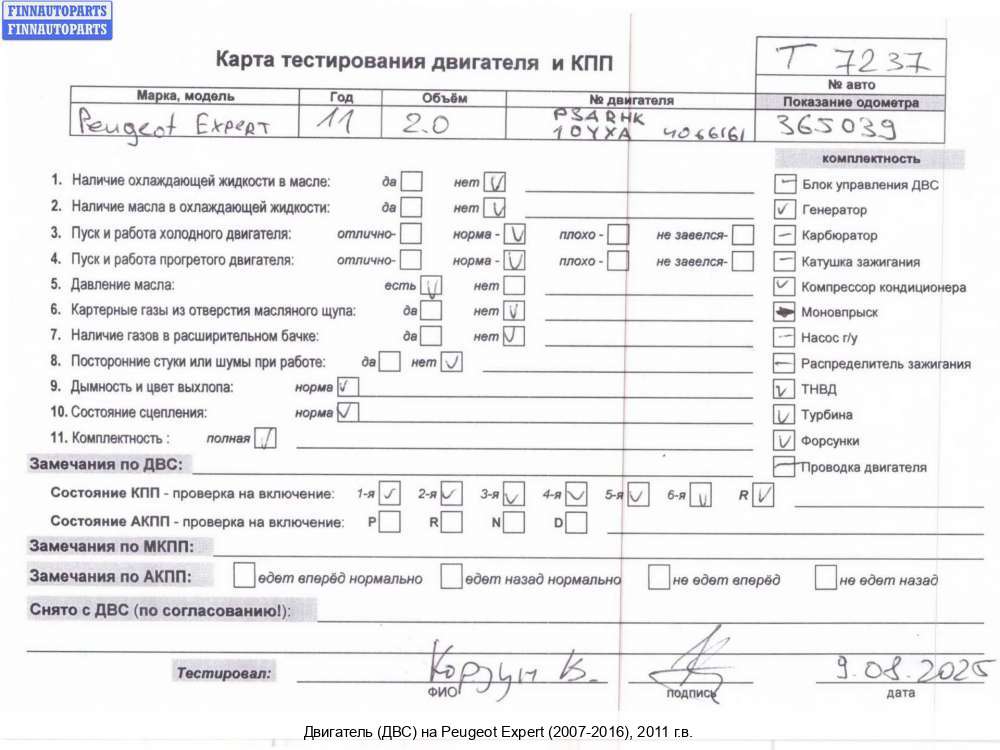 FINNAUTOPARTS
FINNAUTOPARTS
Карта тестирования двигателя и КПП
T 7237
№ авто
Марка, модель Год Объём № двигателя Показание одометра
Peugeot Expert 11 2.0 PSARHK 10YXA 4066161 365039
комплектность
1. Наличие охлаждающей жидкости в масле: да нет V
2. Наличие масла в охлаждающей жидкости: да нет V
3. Пуск и работа холодного двигателя: отлично- норма - V плохо - не завелся-
4. Пуск и работа прогретого двигателя: отлично- норма - V плохо - не завелся-
5. Давление масла: есть V нет
6. Картерные газы из отверстия масляного щупа: да нет V
7. Наличие газов в расширительном бачке: да нет V
8. Посторонние стуки или шумы при работе: да нет V
9. Дымность и цвет выхлопа: норма V
10. Состояние сцепления: норма V
11. Комплектность : полная V
- Блок управления ДВС
V Генератор
- Карбюратор
- Катушка зажигания
V Компрессор кондиционера
Моновпрыск
- Насос г/у
- Распределитель зажигания
V ТНВД
V Турбина
V Форсунки
- Проводка двигателя
Замечания по ДВС:
Состояние КПП - проверка на включение: 1-я V 2-я V 3-я V 4-я V 5-я V 6-я V R V
Состояние АКПП - проверка на включение: P R N D
Замечания по МКПП:
Замечания по АКПП: едет вперёд нормально едет назад нормально не едет вперёд не едет назад
Снято с ДВС (по согласованию!):
Тестировал: Корзун В. 9.08.2025
ФИО подпись дата
Двигатель (ДВС) на Peugeot Expert (2007-2016), 2011 г.в.